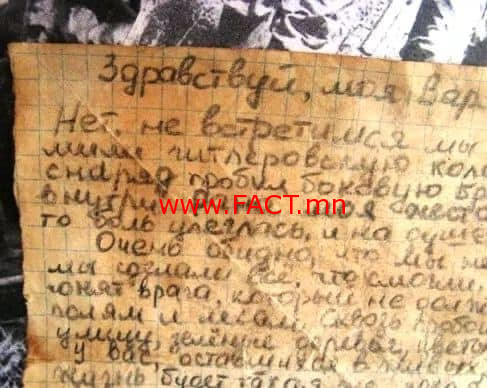 Здравствуй, моя Вар
Нет, не встретимся мы
гитлеровскую коло
снаряд пробил боковую бр
внутри
www.FACT.mn
то боль улеглась, и на
Очень обидно, что мы не
мы сделали все, что смогли,
гонят врага, который не долж
полям и лесам. Сквозь пробои
улицу, зелёные деревья, цветы
у вас, оставшихся в живых
жизнь будет такая